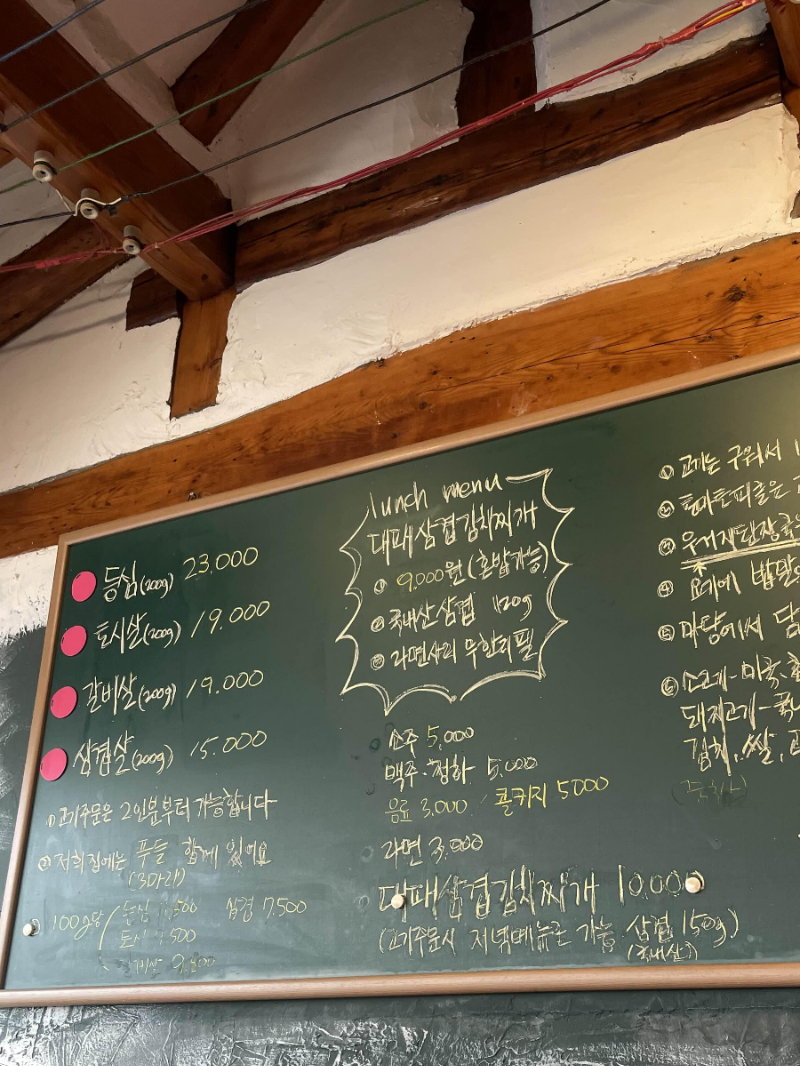 등심(200g) 23,000
토시살(200g) 19.000
갈비살(200g) 19.000
삼겹살(200g) 15.000
① 고기주문은 2인분부터 가능합니다
② 저희집에는 푸들 함께 있어요
(3마리)
100g당 등심 삼겹 7.500
토시
lunch menu
대패삼겹김치찌개
① 9.000원 (혼밥가능)
② 국내산 삼겹 120g
③ 라면사리 무한리필
소주 5,000
맥주·청하 5.000
음료 3.000 / 콜키지 5000
라면 3.000
대패삼겹김치찌개 10,000
(고기주문시 저녁메뉴로 가능 삼겹 150g)
(국내산)
① 고기는 구워서
② 토마토피클은
③ 우거지된장국은
④ 요기에 밥말
⑤ 마당에서 담
⑥ 소고기-미국,
돼지고기-국
김치, 쌀,